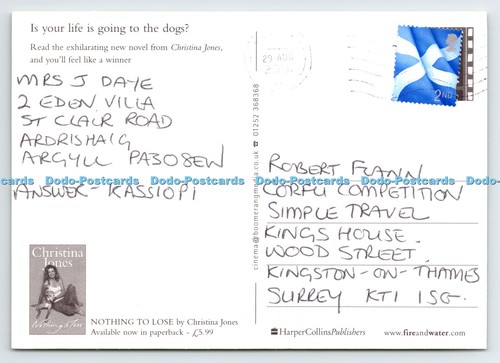 Is your life is going to the dogs?
Read the exhilarating new novel from Christina Jones,
and you'll feel like a winner
MRS J DAYE
2 EDEN VILLA
ST CLAIR ROAD
ARDRISHAIG
ARGYLL PA308EW
ANSWER - KASSIOPI
Christina
Jones
Nothing to Lose
NOTHING TO LOSE by Christina Jones
Available now in paperback - £5.99
cinema@boomerangmedia.co.uk 01252 368368
29 AUG
2ND
ROBERT FLANN
CORFU COMPETITION
SIMPLE TRAVEL
KINGS HOUSE.
WOOD STREET.
KINGSTON-ON-THAMES
SURREY KT1 1SG.
HarperCollinsPublishers
www.fireandwater.com
cards Dodo-Postcards Dodo-Postcards Dodo-Postcards Dodo-Postcards